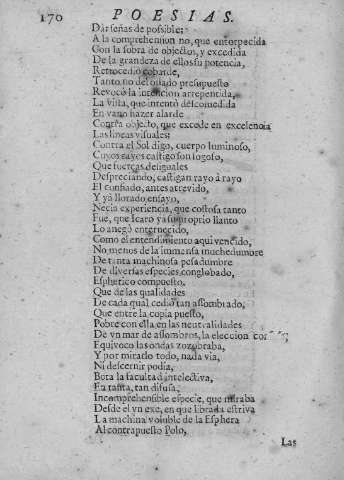 170 POESIAS.
Dàr señas de possible:
A la comprehension no, que entorpecida
Con la sobra de objectos, y excedida
De la grandeza de ellos su potencia,
Retrocediò cobarde,
Tanto no del osado presupuesto
Revocò la intencion arrepentida,
La vista, que intentò descomedida
En vano hazer alarde
Contra objecto, que excede en excelencia
Las lineas visuales:
Contra el Sol digo, cuerpo luminoso,
Cuyos rayos castigo son fogoso,
Que fuerças desiguales
Despreciando, castigan rayo à rayo
El confiado, antes atrevido,
Y yà llorado ensayo,
Necia experiencia, que costosa tanto
Fue, que Icaro ya su proprio llanto
Lo anegò enternecido,
Como el entendimiento aqui vencido,
No menos de la immensa muchedumbre
De tanta machinosa pesadumbre
De diversas especies conglobado,
Espherico compuesto,
Que de las qualidades
De cada qual cediò tan assombrado,
Que entre la copia puesto,
Pobre con ella en las neutralidades
De vn mar de assombros, la eleccion
Equivoco las ondas zozobraba,
Y por mirarlo todo, nada via,
Ni discernir podia,
Bota la facultad intelectiva,
En tanta, tan difusa,
Incomprehensible especie, que miraba
Desde el vn exe, en que librada estriva
La machina voluble de la Esphera
Al contrapuesto Polo,
Las